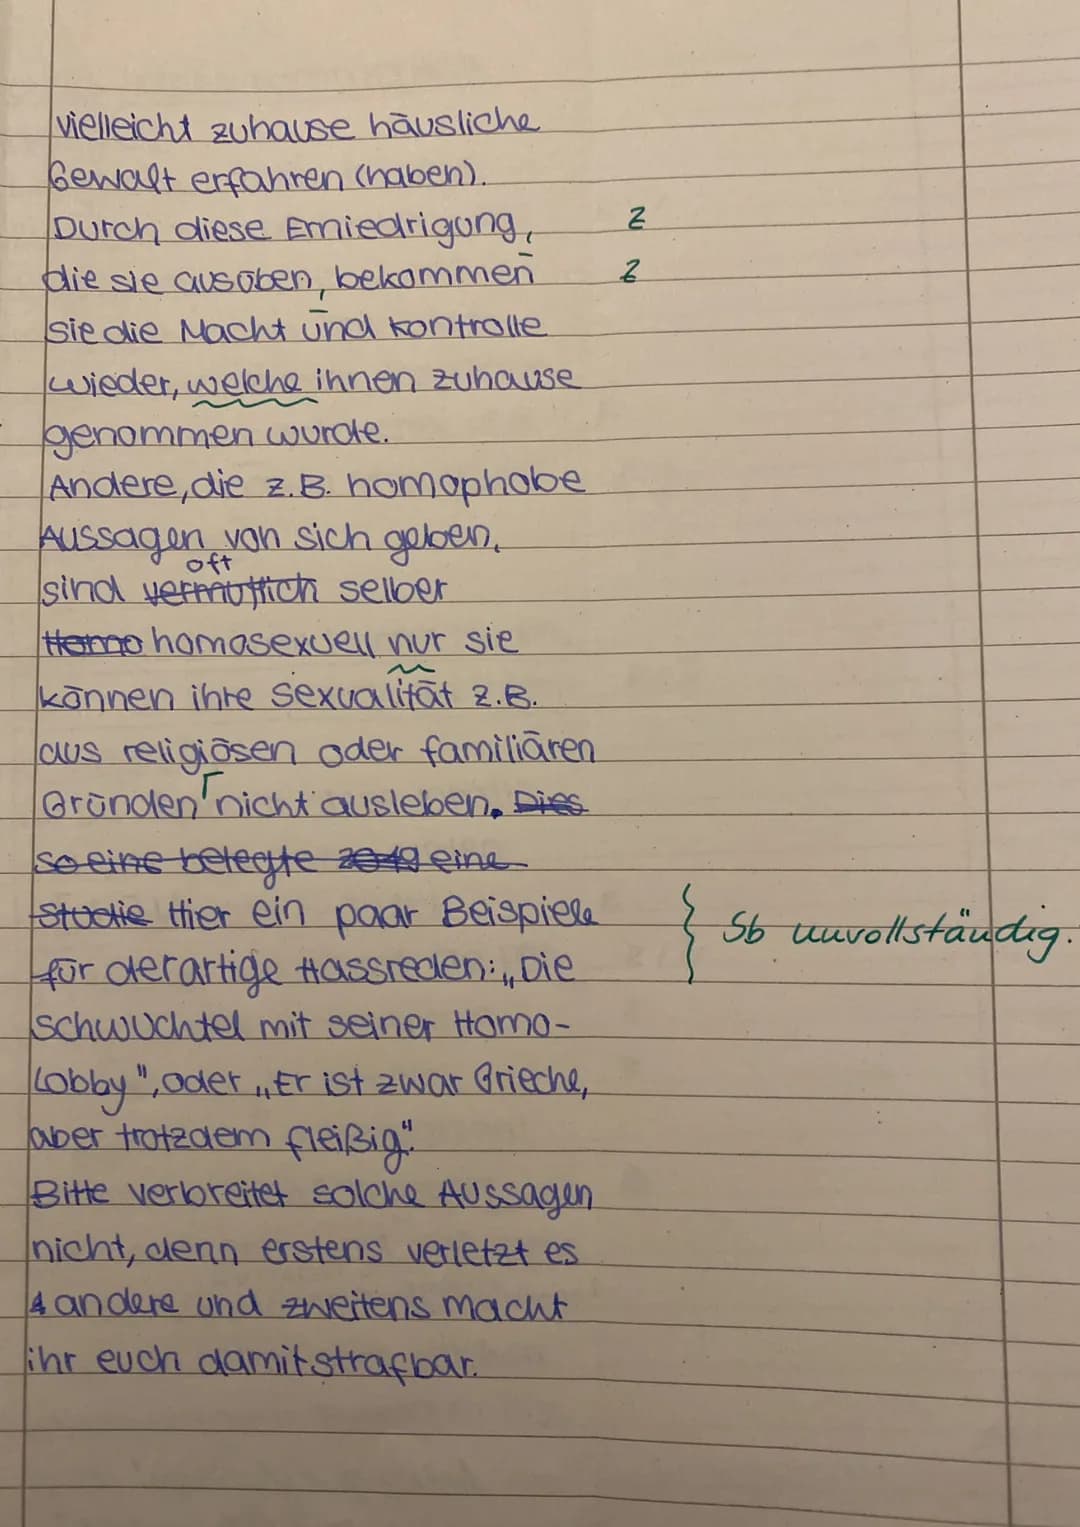 vielleicht zuhause häusliche
Gewalt erfahren (haben).
Durch diese Erniedrigung, Z
die sie ausüben, bekommen Z
sie die Macht und Kontrolle
wieder, welche ihnen zuhause
genommen wurde.
Andere, die z.B. homophobe
Aussagen von sich geben,
oft
sind vermutlich selber
Homo homosexuell nur sie
können ihre Sexualität z.B.
aus religiösen oder familiären
Gründen nicht ausleben. Dies
so eine belegte 2019 eine
Studie Hier ein paar Beispiele
für derartige Hassreden: „Die
Sb unvollständig.
Schwuchtel mit seiner Homo-
Lobby", oder „Er ist zwar Grieche,
aber trotzdem fleißig".
Bitte verbreitet solche Aussagen
nicht, denn erstens verletzt es
andere und zweitens macht
ihr euch damit strafbar.